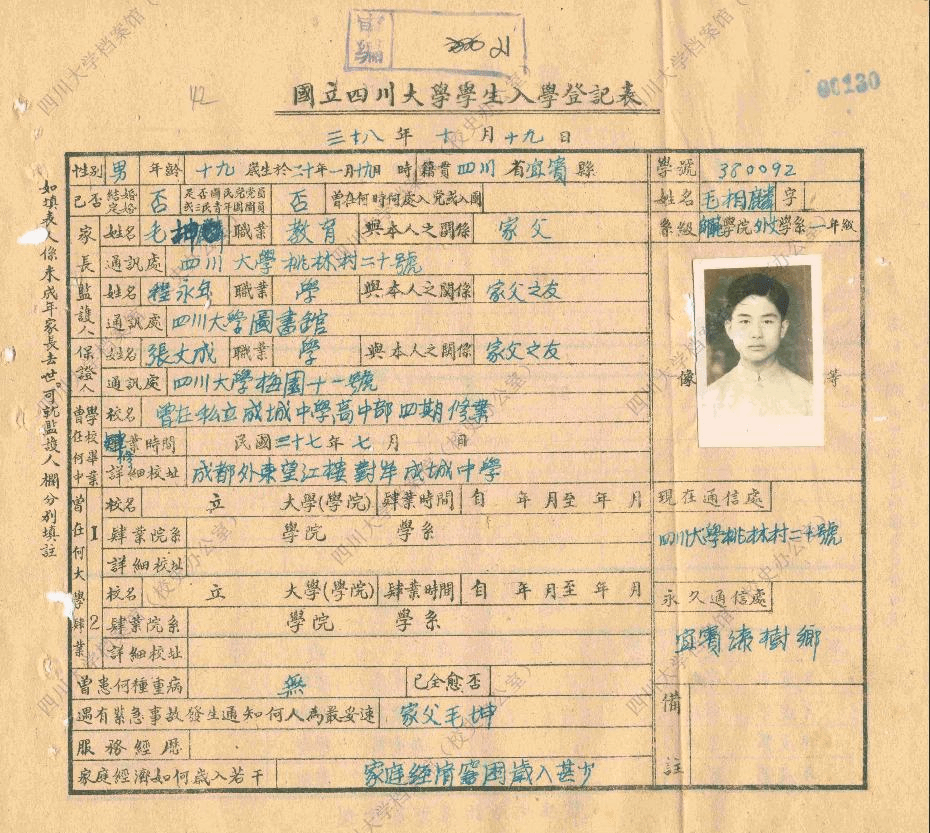 42
00130
國立四川大學學生入學登記表
三十八年十月十九日
性別 男 年齡 十九 歲生於二十年一月十九日 時 籍貫 四川 省宜賓縣
學號 380092
已否結婚定婚 否 是否國民党党員或三民青年團團員 否 曾在何時何處入党或入團
姓名 毛相麟 字
家長 姓名 毛坤 職業 教育 與本人之關係 家父
系級 學院外文學系一年級
通訊處 四川大學桃林村二十號
監護人 姓名 程永年 職業 學 與本人之關係 家父之友
通訊處 四川大學圖書館
保證人 姓名 張文成 職業 學 與本人之關係 家父之友
像 等
通訊處 四川大學梅園十一號
曾在何中學校畢業 校名 曾在私立成城中學高中部四期修業
業時間 民國三十七年七月 日
詳細校址 成都外東望江樓對岸成城中學
曾在何大學肄業
1 校名 立 大學(學院) 肄業時間 自 年月至 年 月
現在通信處
肄業院系 學院 學系
四川大學桃林村二十號
詳細校址
2 校名 立 大學(學院) 肄業時間 自 年月至 年 月
永久通信處
肄業院系 學院 學系
宜賓 樹鄉
詳細校址
曾患何種重病 無 已全愈否
備註
遇有緊急事故發生通知何人為最妥速 家父毛坤
服務經歷
家庭經濟如何歲入若干 家庭經濟窘困歲入甚少
如填表人係未成年家長去世可就監護人欄分別填註
四川大学档案馆（校史办公室）